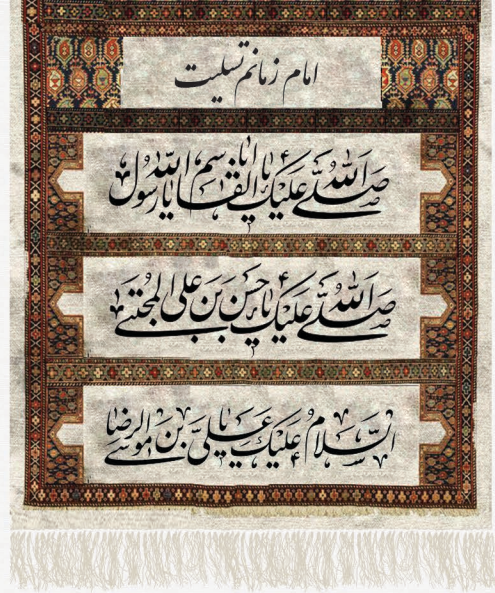 امام زمانم تسلیت
صلی الله علیک یا اباالقاسم یا رسول الله
صلی الله علیک یا حسن بن علی المجتبی
السلام علیک یا علی بن موسی الرضا